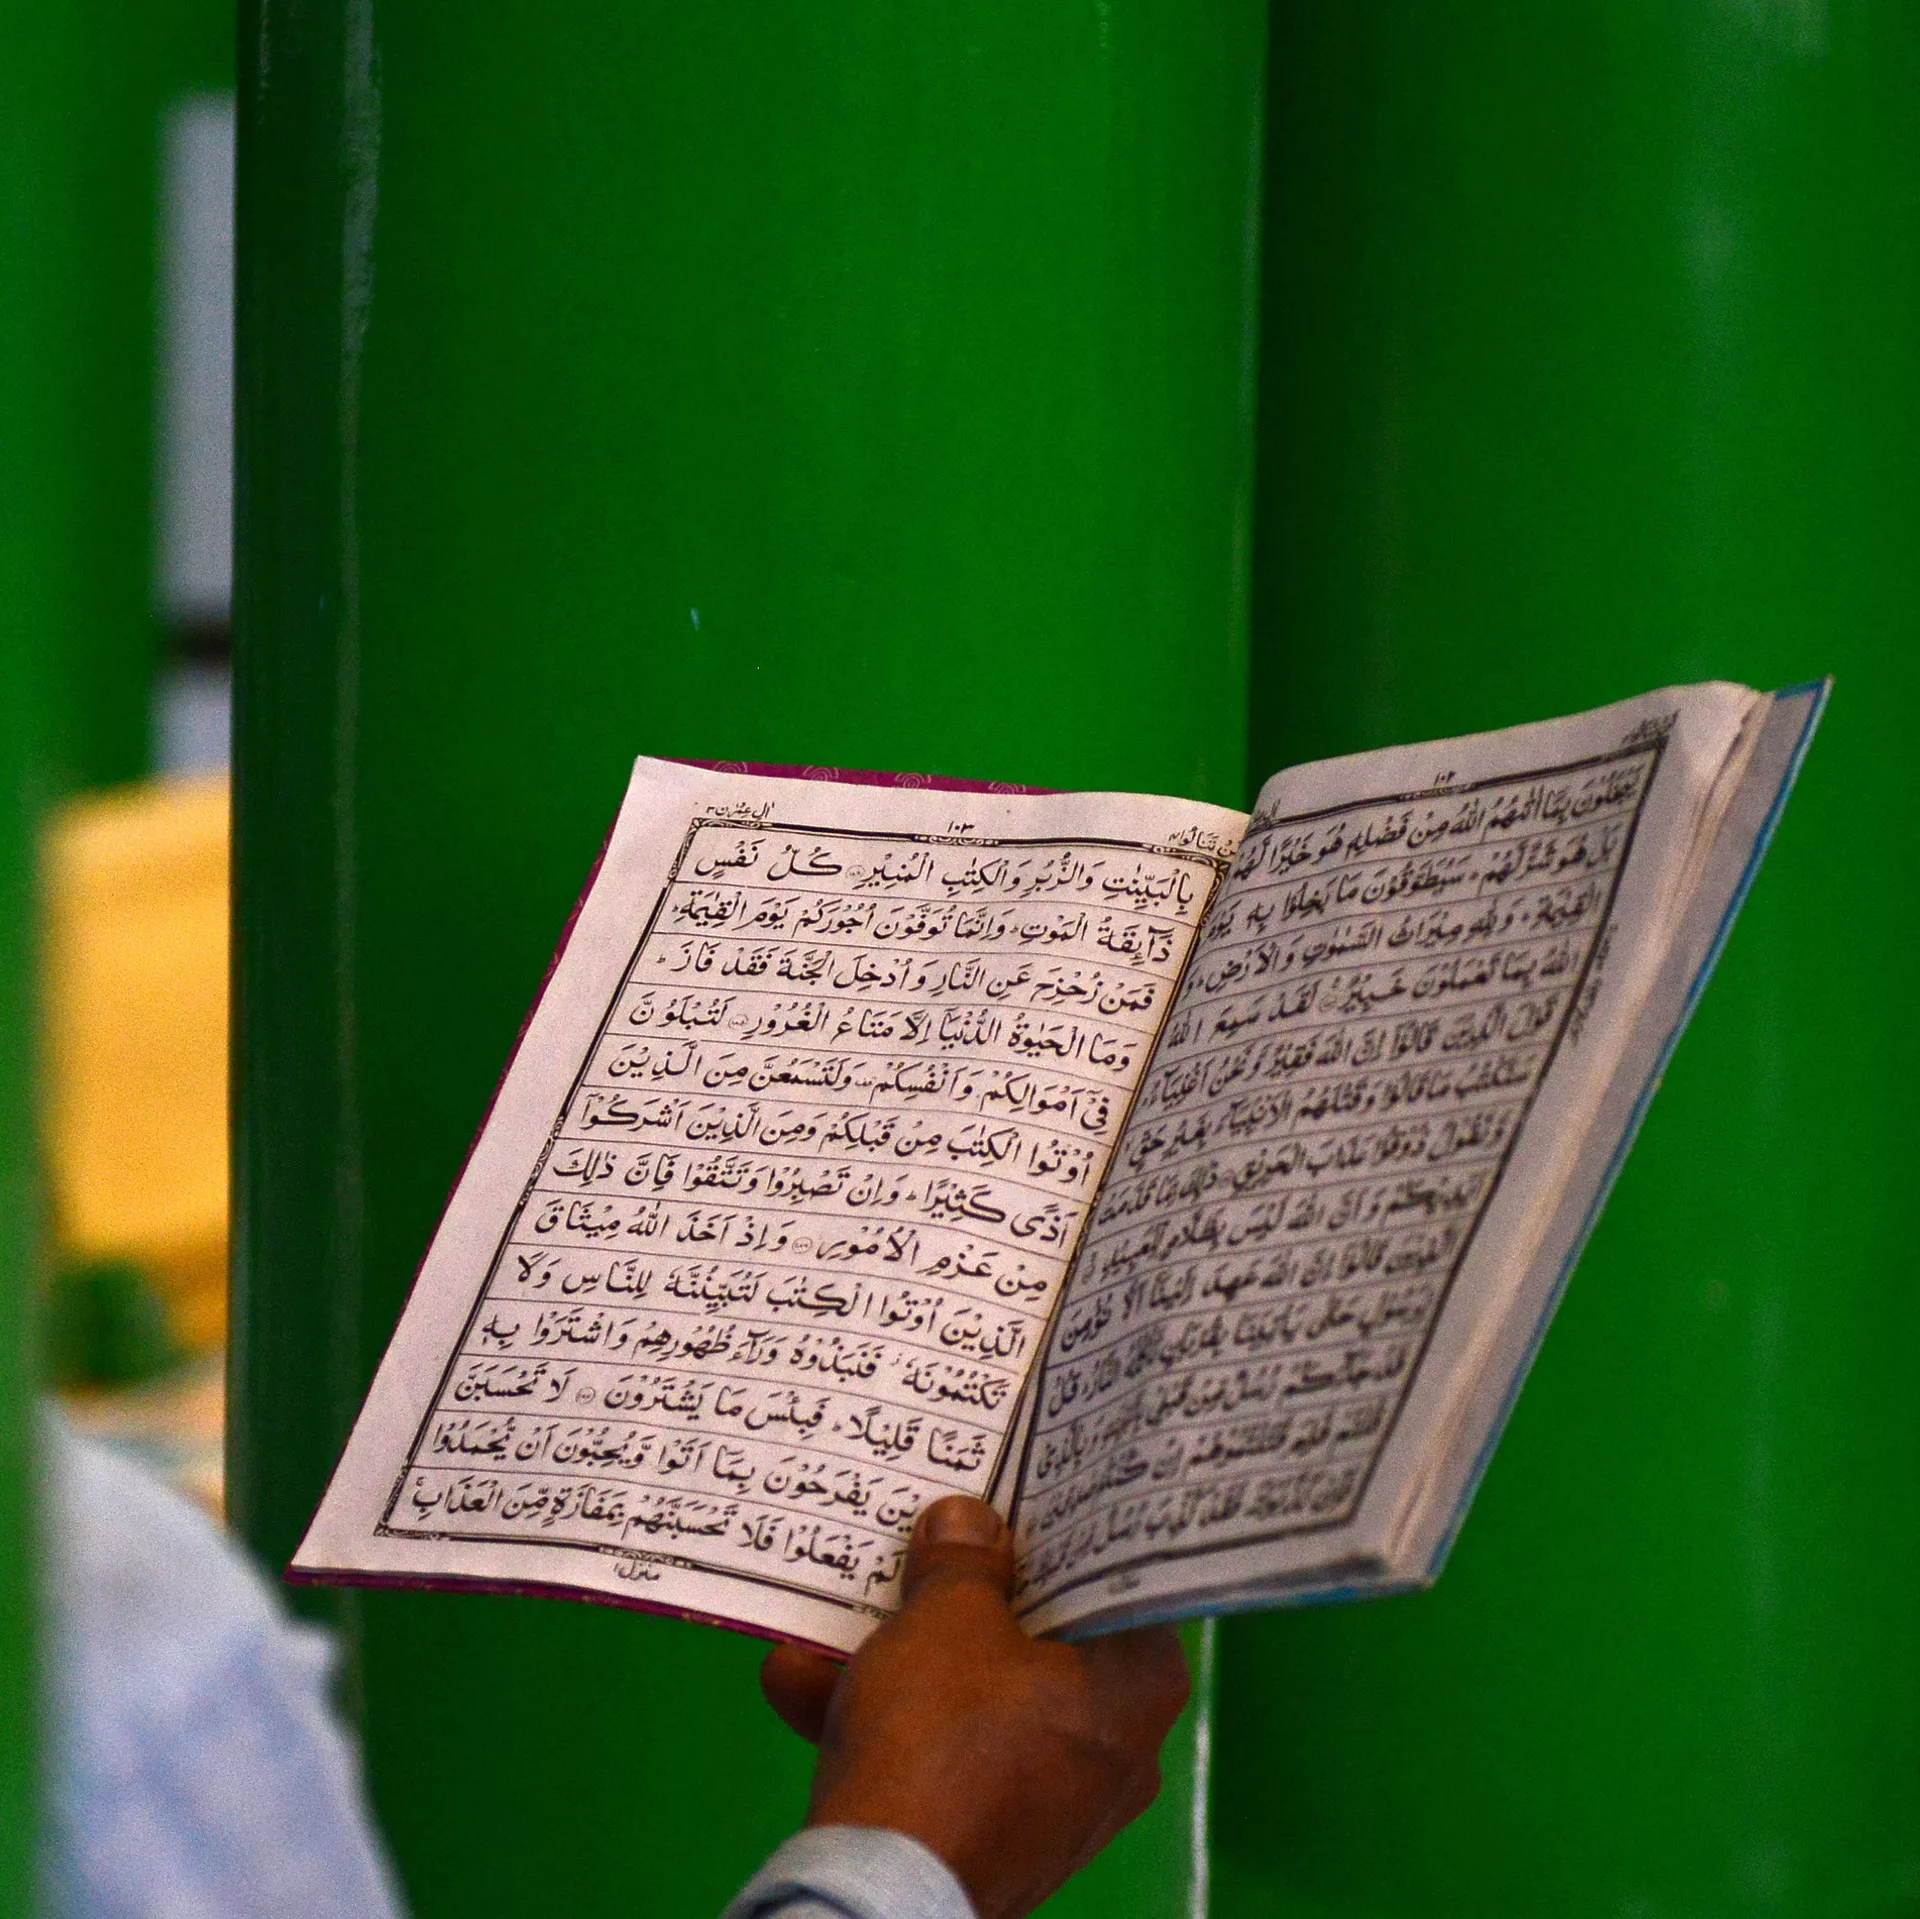 ١٠٢
يَبْخَلُوْنَ بِمَآ اٰتٰىهُمُ اللّٰهُ مِنْ فَضْلِهٖ هُوَ خَيْرًا لَّهُمْ
بَلْ هُوَ شَرٌّ لَّهُمْ ؕ سَيُطَوَّقُوْنَ مَا بَخِلُوْا بِهٖ يَوْمَ
الْقِيٰمَةِ ؕ وَلِلّٰهِ مِيْرَاثُ السَّمٰوٰتِ وَالْاَرْضِ ؕ وَ
اللّٰهُ بِمَا تَعْمَلُوْنَ خَبِيْرٌ لَقَدْ سَمِعَ اللّٰهُ
قَوْلَ الَّذِيْنَ قَالُوْٓا اِنَّ اللّٰهَ فَقِيْرٌ وَّنَحْنُ اَغْنِيَآءُ
سَنَكْتُبُ مَا قَالُوْا وَقَتْلَهُمُ الْاَنْۢبِيَآءَ بِغَيْرِ حَقٍّ
وَّنَقُوْلُ ذُوْقُوْا عَذَابَ الْحَرِيْقِ ذٰلِكَ بِمَا قَدَّمَتْ
اَيْدِيْكُمْ وَاَنَّ اللّٰهَ لَيْسَ بِظَلَّامٍ لِّلْعَبِيْدِ
اَلَّذِيْنَ قَالُوْٓا اِنَّ اللّٰهَ عَهِدَ اِلَيْنَآ اَلَّا نُؤْمِنَ
لِرَسُوْلٍ حَتّٰى يَاْتِيَنَا بِقُرْبَانٍ تَاْكُلُهُ النَّارُ قُلْ
قَدْ جَآءَكُمْ رُسُلٌ مِّنْ قَبْلِيْ بِالْبَيِّنٰتِ وَبِالَّذِيْ
قُلْتُمْ فَلِمَ قَتَلْتُمُوْهُمْ اِنْ كُنْتُمْ
فَاِنْ كَذَّبُوْكَ فَقَدْ كُذِّبَ رُسُلٌ مِّنْ
تنالوا ٤ ١٠٣ اٰل عمرٰن ٣
بِالْبَيِّنٰتِ وَالزُّبُرِ وَالْكِتٰبِ الْمُنِيْرِ ۝١٨٤ كُلُّ نَفْسٍ
ذَآئِقَةُ الْمَوْتِ ؕ وَاِنَّمَا تُوَفَّوْنَ اُجُوْرَكُمْ يَوْمَ الْقِيٰمَةِ ؕ
فَمَنْ زُحْزِحَ عَنِ النَّارِ وَاُدْخِلَ الْجَنَّةَ فَقَدْ فَازَ ؕ
وَمَا الْحَيٰوةُ الدُّنْيَآ اِلَّا مَتَاعُ الْغُرُوْرِ ۝١٨٥ لَتُبْلَوُنَّ
فِيْٓ اَمْوَالِكُمْ وَاَنْفُسِكُمْ وَلَتَسْمَعُنَّ مِنَ الَّذِيْنَ
اُوْتُوا الْكِتٰبَ مِنْ قَبْلِكُمْ وَمِنَ الَّذِيْنَ اَشْرَكُوْٓا
اَذًى كَثِيْرًا ؕ وَاِنْ تَصْبِرُوْا وَتَتَّقُوْا فَاِنَّ ذٰلِكَ
مِنْ عَزْمِ الْاُمُوْرِ ۝١٨٦ وَاِذْ اَخَذَ اللّٰهُ مِيْثَاقَ
الَّذِيْنَ اُوْتُوا الْكِتٰبَ لَتُبَيِّنُنَّهٗ لِلنَّاسِ وَلَا
تَكْتُمُوْنَهٗ ؗ فَنَبَذُوْهُ وَرَآءَ ظُهُوْرِهِمْ وَاشْتَرَوْا بِهٖ
ثَمَنًا قَلِيْلًا ؕ فَبِئْسَ مَا يَشْتَرُوْنَ ۝١٨٧ لَا تَحْسَبَنَّ
يْنَ يَفْرَحُوْنَ بِمَآ اَتَوْا وَّيُحِبُّوْنَ اَنْ يُّحْمَدُوْا
لَمْ يَفْعَلُوْا فَلَا تَحْسَبَنَّهُمْ بِمَفَازَةٍ مِّنَ الْعَذَابِ ۚ
منزل ١